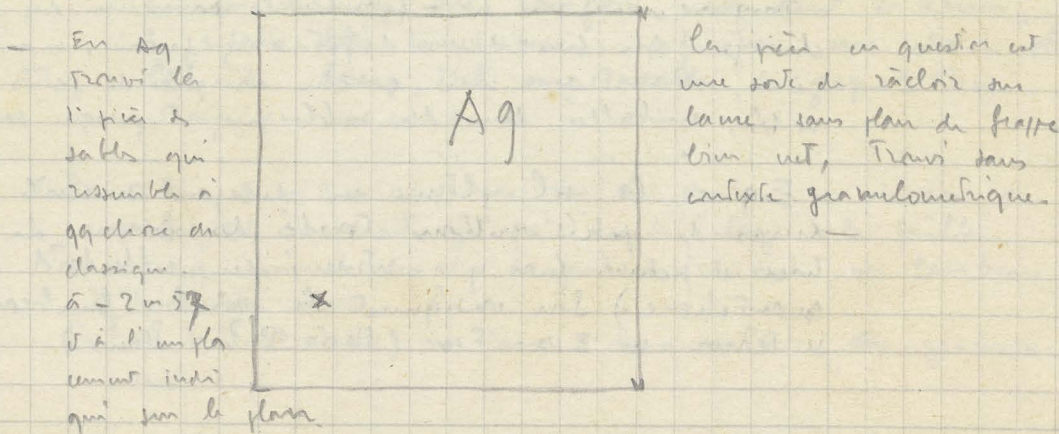 – En Ag
Trouvé les
1° pièce des
sables qui
ressemble à
qq chose de
classique.
à – 2 m 57
et à l'empla
cement indi
qué sur le plan
Ag
x
La pièce en question est
une sorte de râcloir sur
lame, sans plan de frappe
bien net, Trouvé sans
contexte granulométrique.